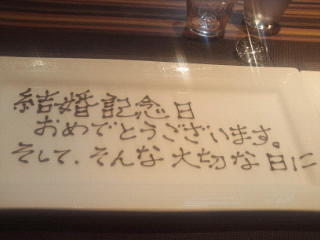 結婚記念日
おめでとうございます。
そして、そんな大切な日に